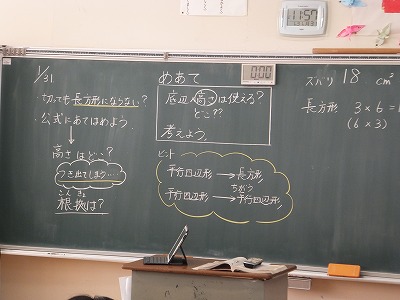 11:50
000
1/31
・切っても長方形にならない?
・公式にあてはめよう
高さはどこ?
つき出てしまう……
こん きょ
根拠は?
めあて
底辺×高さは使える?
どこ??
考えよう。
ヒント
平行四辺形→長方形
ちがう
平行四辺形→平行四辺形
ズバリ 18 cm²
長方形 3×6=
(6×3)